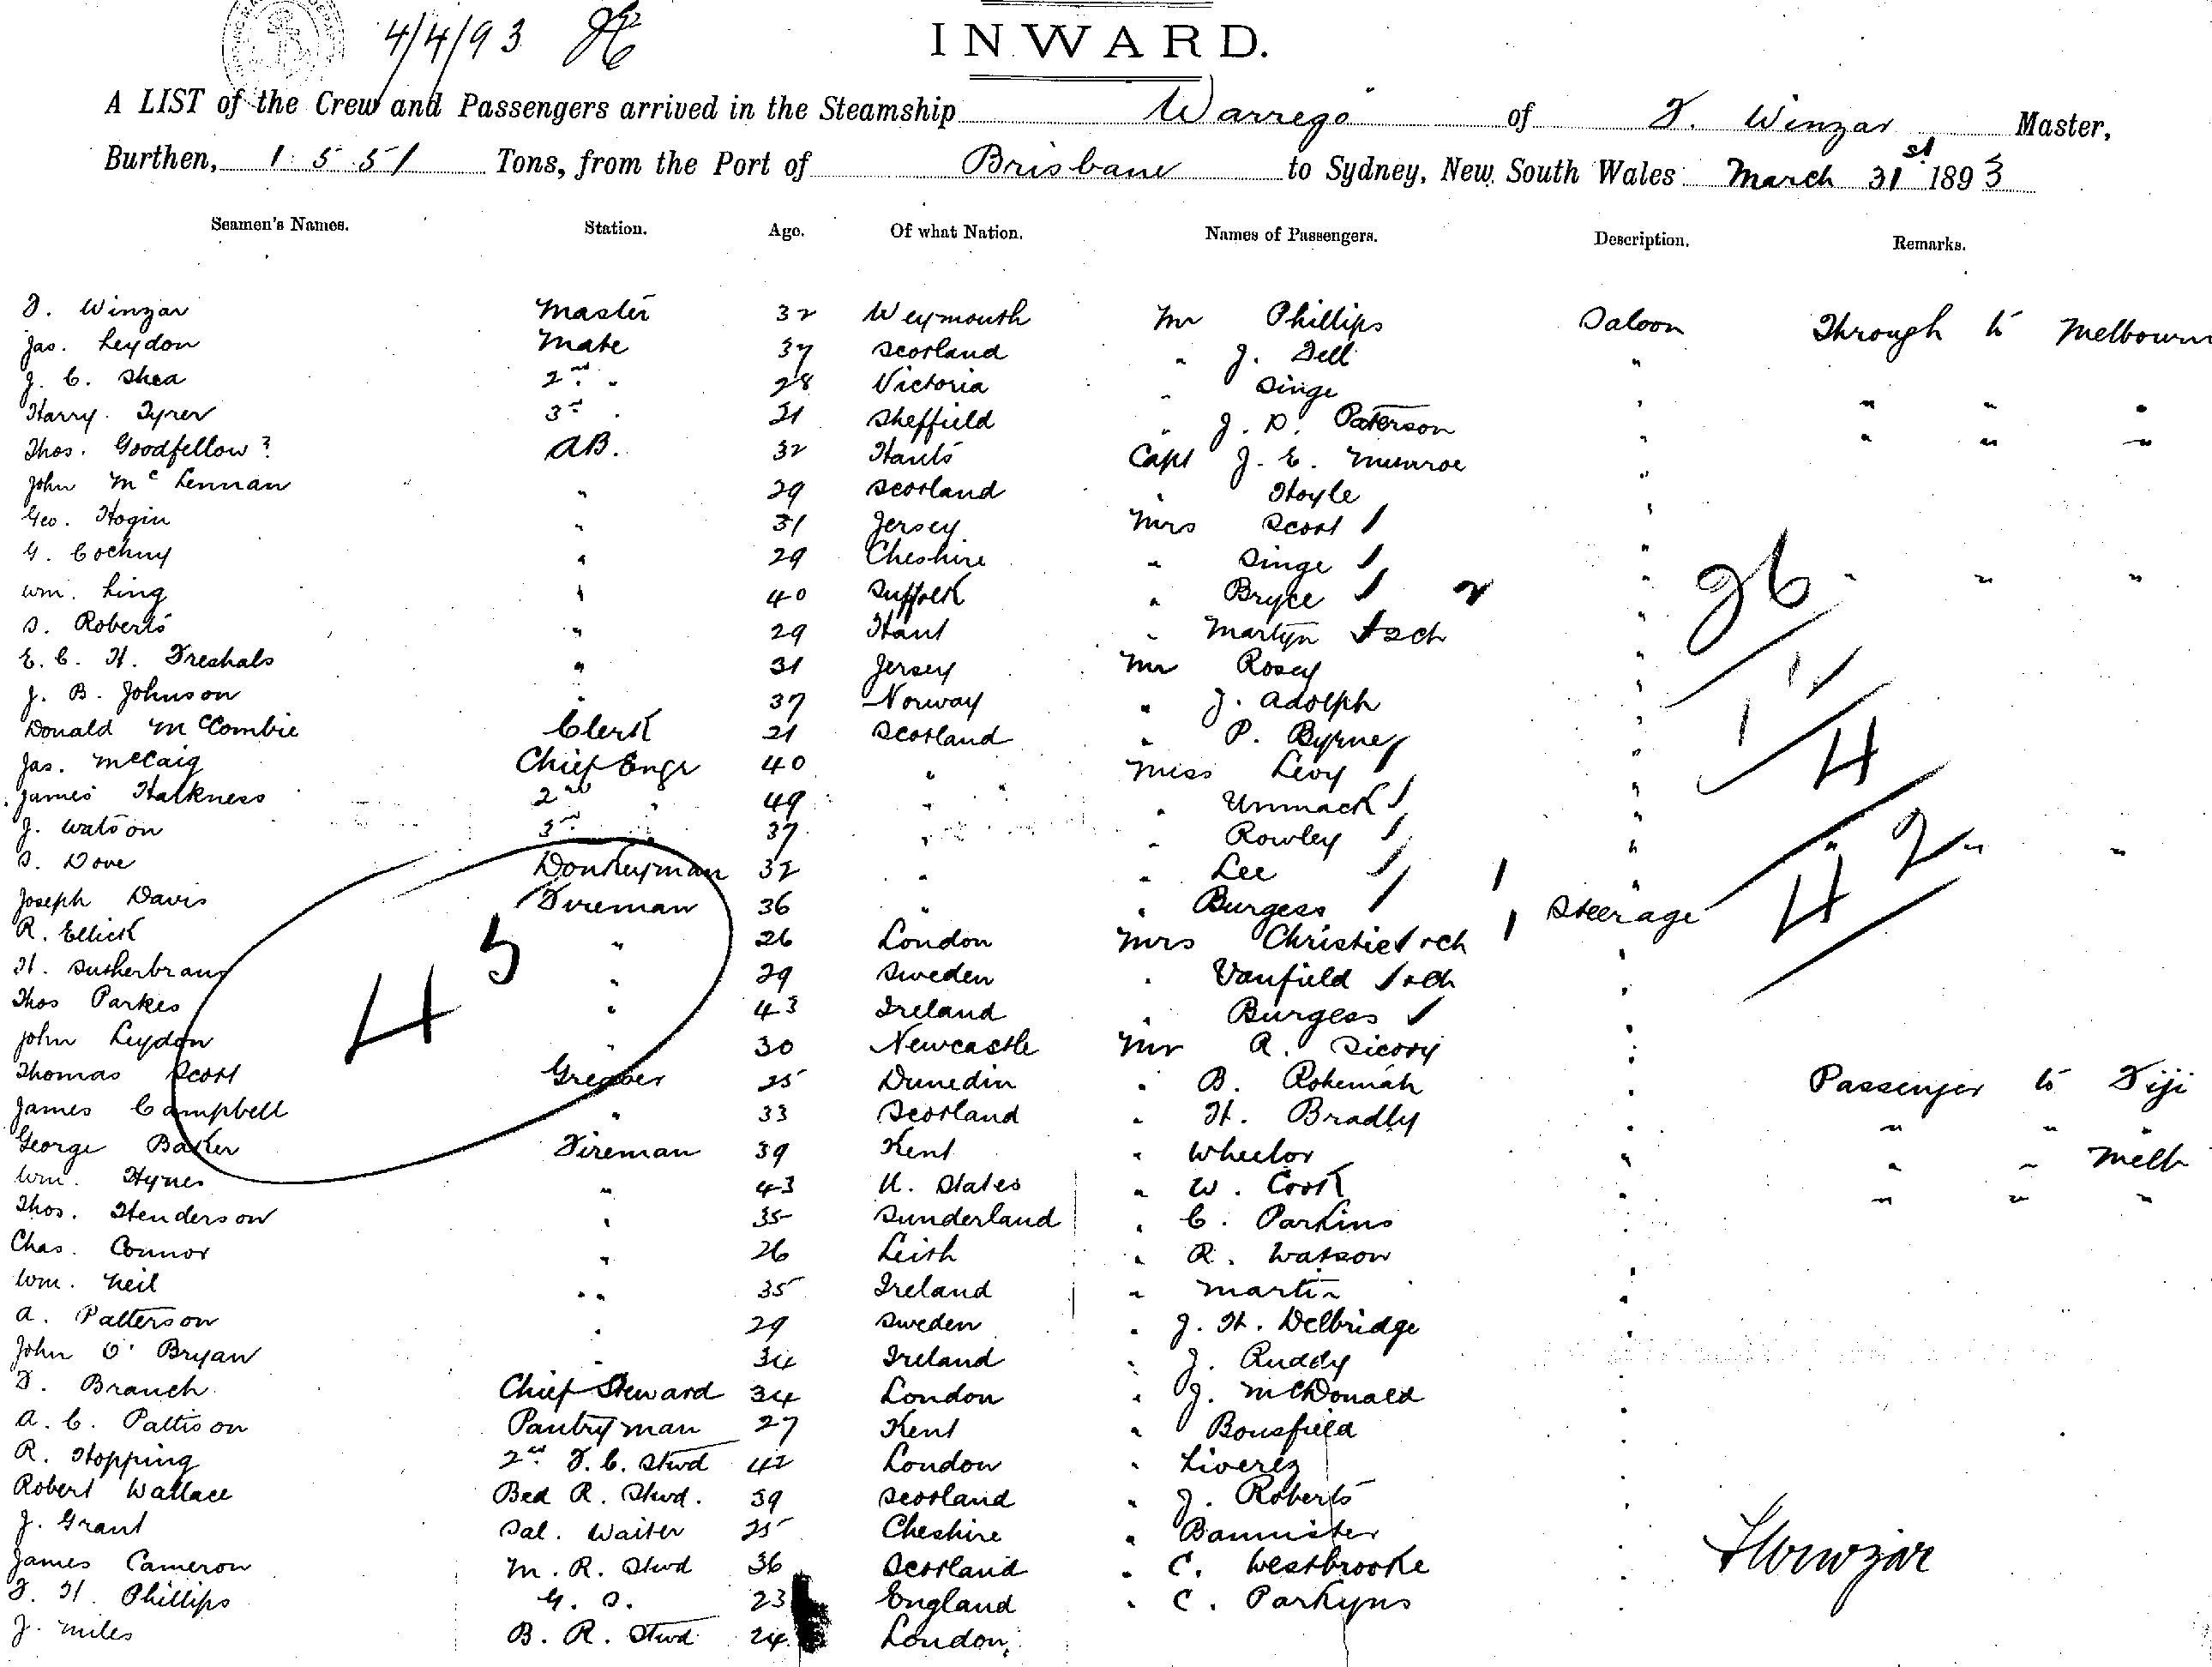 4/4/93
INWARD.
A LIST of the Crew and Passengers arrived in the Steamship Warrego of F. Winzar Master,
Burthen, 1551 Tons, from the Port of Brisbane to Sydney, New South Wales March 31st 1893
Seamen's Names. Station. Age. Of what Nation. Names of Passengers. Description. Remarks.
F. Winzar Master 32 Weymouth Mr Phillips Saloon Through to Melbourn
Jas. Leydon Mate 37 Scotland " J. Dell "
J. C. Shea 2nd " 28 Victoria " Singe " " " "
Harry Tyrer 3rd " 21 Sheffield " J. D. Paterson " " " "
Thos. Goodfellow ? AB. 32 Hants Capt J. E. Munroe "
John McLennan " 29 Scotland " Hoyle "
Geo. Hogin " 31 Jersey Mrs Scott / "
G. " 29 Cheshire " Singe / " 26 " " "
Wm. Ling " 40 Suffolk " Bryce / 2 "
S. Roberts " 29 Hant " Martyn / + 2 ch "
E. C. H. " 31 Jersey Mr Rosey "
J. B. Johnson " 37 Norway " J. Adolph " 11
Donald McCombie Clerk 21 Scotland " P. Byrne " 1 4
Jas. McCaig Chief Engr 40 " Miss Levy / "
James Harkness 2nd " 49 " " Unmack / "
J. Watson 3rd " 37 " " Rowley / " 42 " "
S. Dove Donkeyman 32 " " Lee / 1 "
Joseph Davis Fireman 36 " " Burgess / 1 Steerage
R. Ellick " 26 London Mrs Christie / + ch 1 "
H. " 29 Sweden " Vanfield / + ch "
45
Thos Parkes " 43 Ireland " Burgess / "
John Leydon " 30 Newcastle Mr R. "
Thomas Scott Greaser 25 Dunedin " B. " Passenger to Fiji
James Campbell " 33 Scotland " H. Bradly " " " "
George Baker Fireman 39 Kent " Wheelor " " " Melb
Wm. Hynes " 43 U. States " W. Cook " " " "
Thos. Henderson " 35 Sunderland " C. Parkins "
Chas. Connor " 26 Leith " R. Watson "
Wm. Neil " " 35 Ireland " Martin "
A. Patterson " 29 Sweden " J. H. Delbridge "
John O'Bryan " 34 Ireland " J. Ruddy "
F. Branch Chief Steward 34 London " J. McDonald "
A. C. Pattison Pantryman 27 Kent " Bousfield "
R. Hopping 2nd F. C. Stwd 42 London " "
Robert Wallace Bed R. Stwd. 39 Scotland " J. Roberts "
J. Grant Sal. Waiter 25 Cheshire " Bannister "
James Cameron M. R. Stwd 36 Scotland " C. Westbrooke "
F. H. Phillips G. S. 23 England " C. Parkyns "
J. Miles B. R. Stwd 24 London
F Winzar